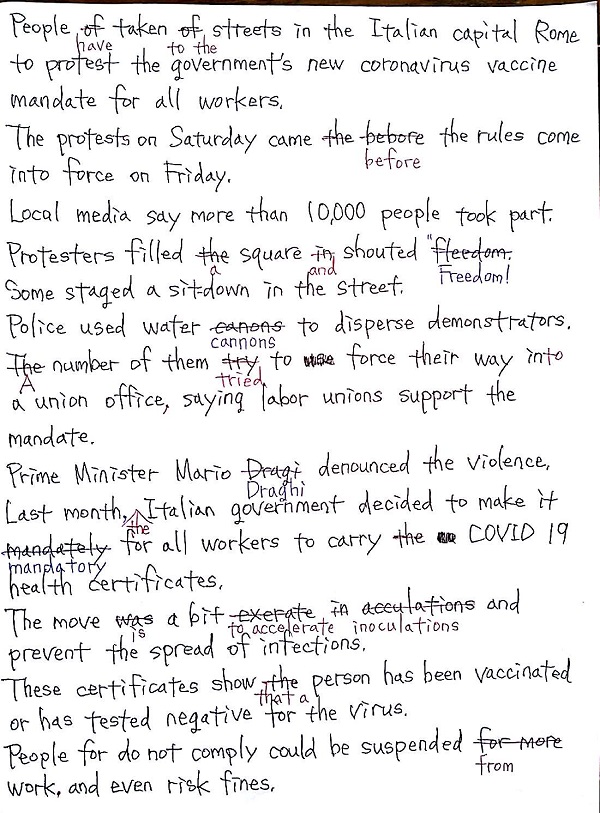 People of taken of streets in the Italian capital Rome
have to the
to protest the government's new coronavirus vaccine
mandate for all workers.
The protests on Saturday came the bebore the rules come
before
into force on Friday.
Local media say more than 10,000 people took part.
Protesters filled the square in shouted "fleedom.
a and Freedom!
Some staged a sit-down in the street.
Police used water canons to disperse demonstrators.
cannons
The number of them try to force their way into
A tried
a union office, saying labor unions support the
mandate.
Prime Minister Mario Dragi denounced the violence.
Draghi
Last month, Italian government decided to make it
the
mandately for all workers to carry the COVID 19
mandatory
health certificates.
The move was a bit exerate in acculations and
is to accelerate inoculations
prevent the spread of infections.
These certificates show the person has been vaccinated
that a
or has tested negative for the virus.
People for do not comply could be suspended for more
from
work, and even risk fines.